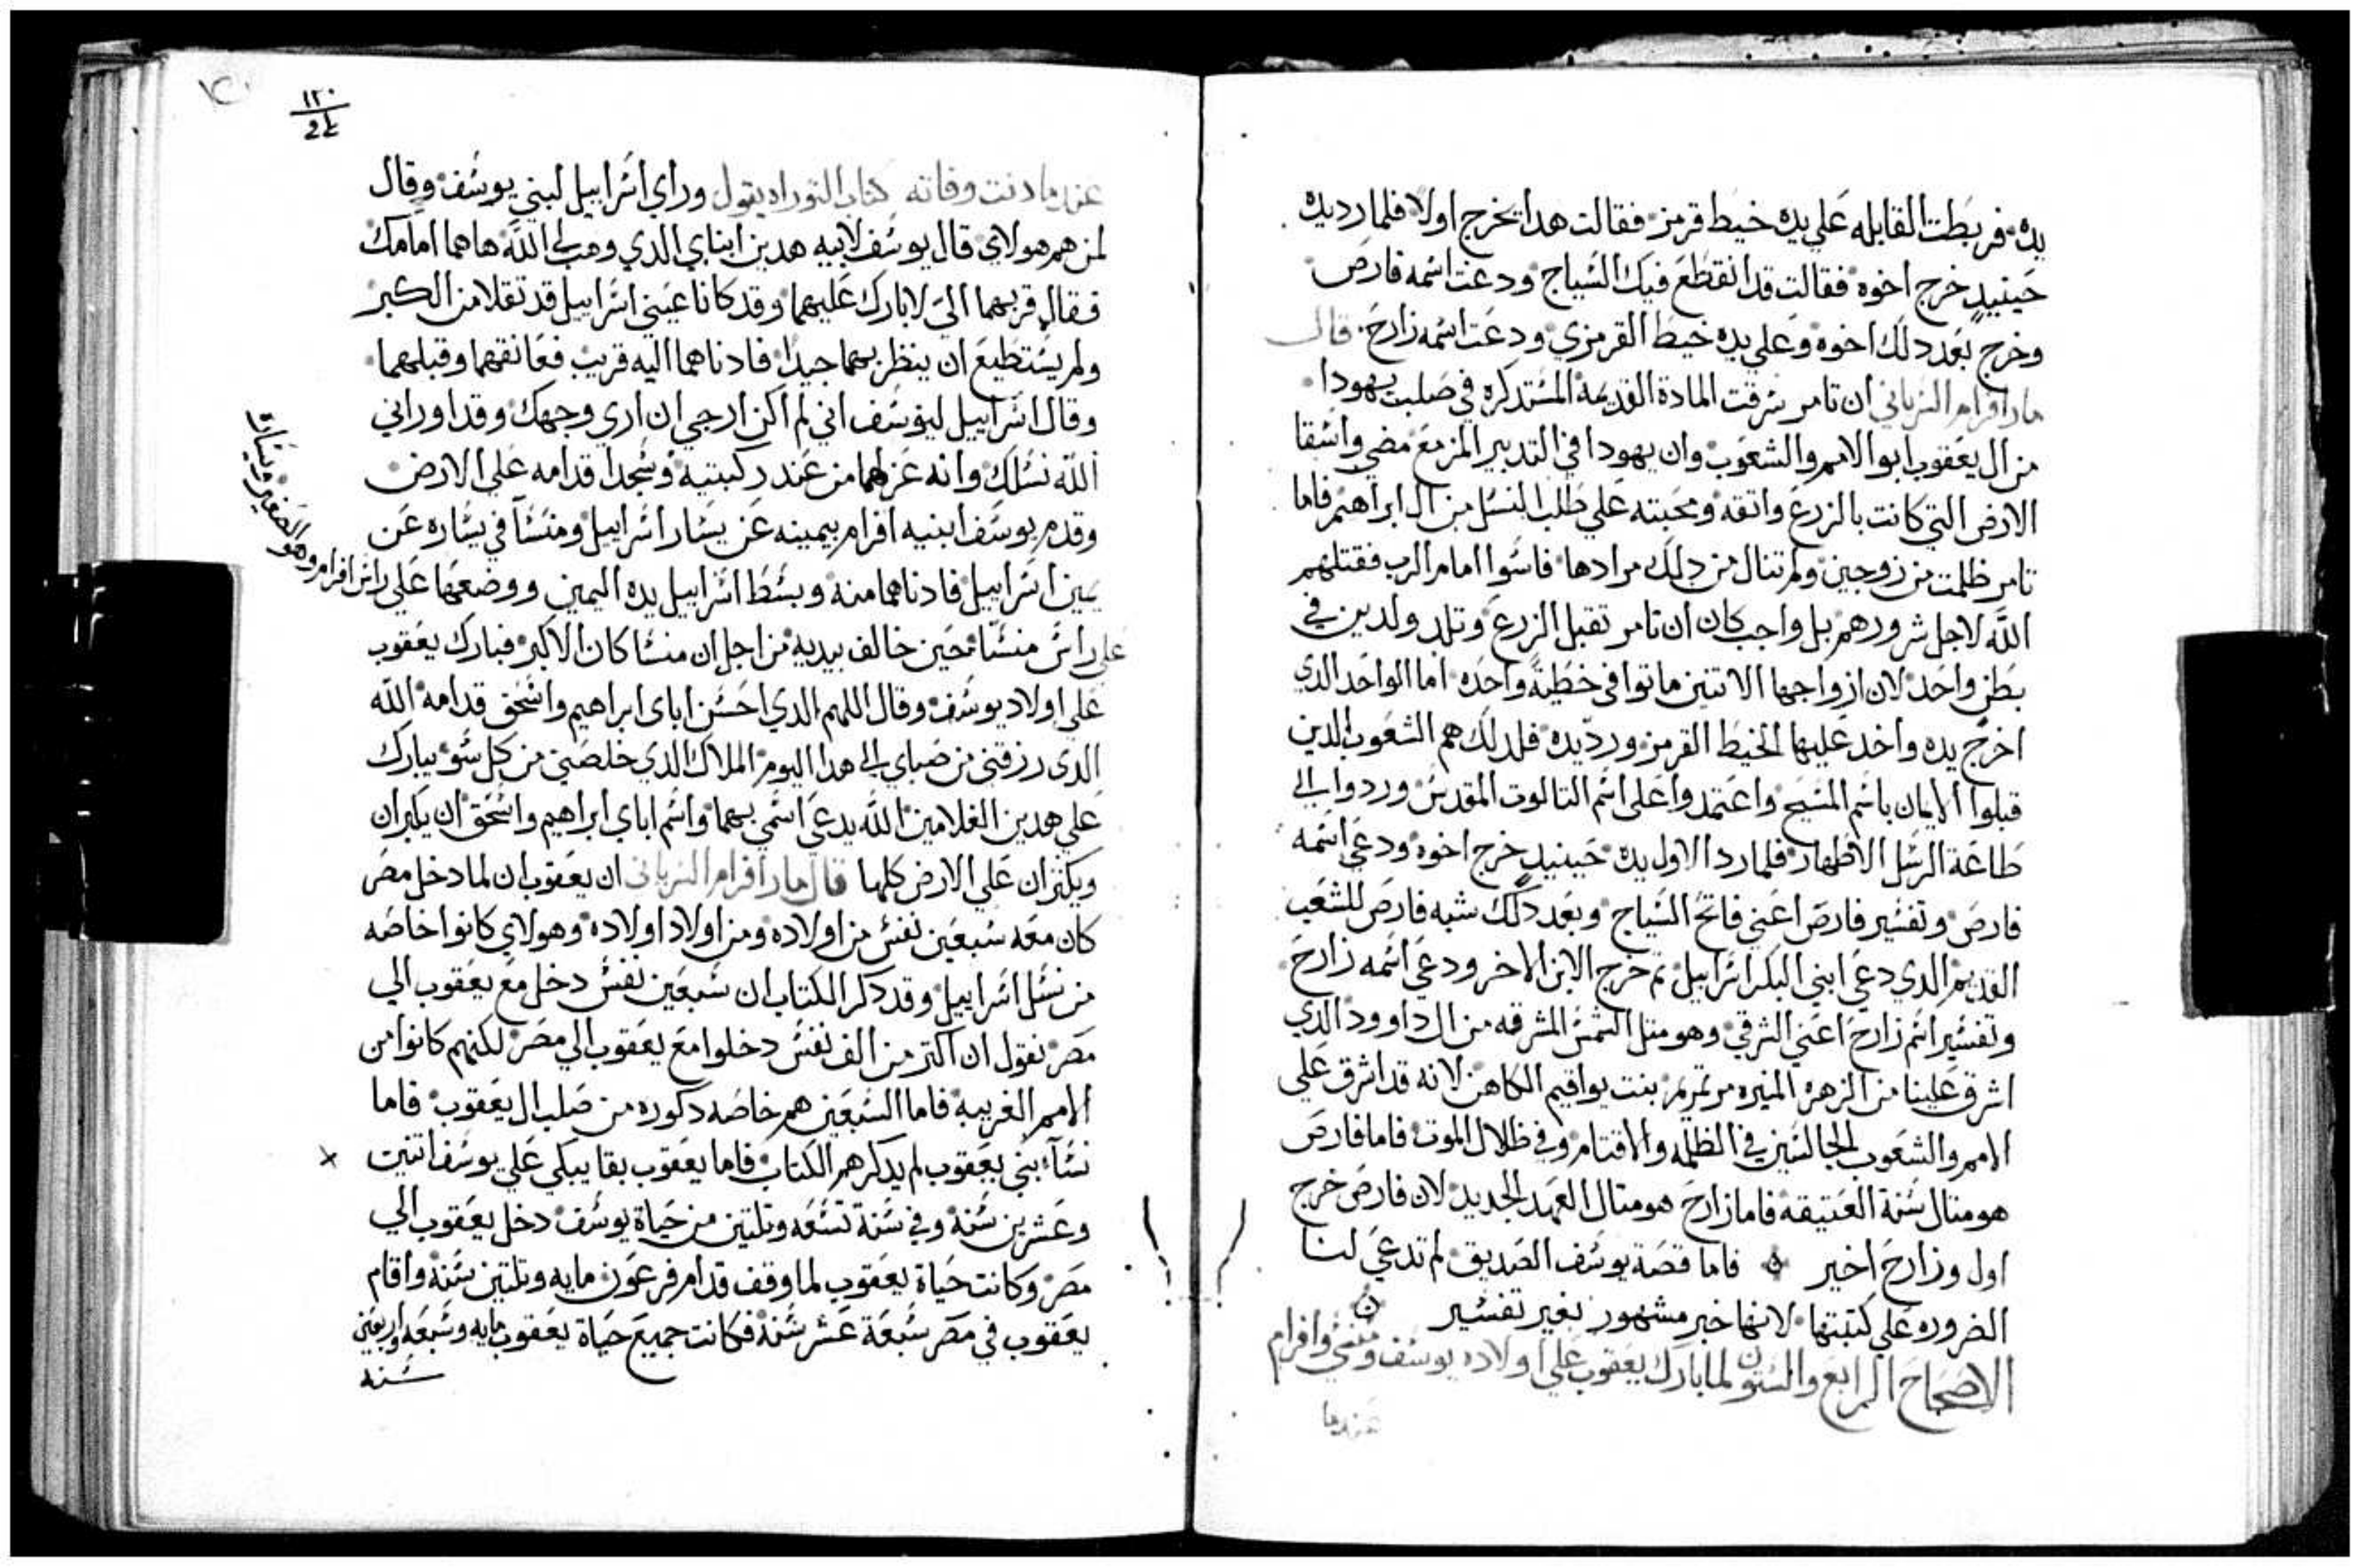 يده فربطت القابله علي يده خيط قرمز فقالت هدا يخرج اولا فلما رد يده
حينيدٍ خرج اخوه فقالت قد انقطع فيك السياج ودعت اسمه فارص
وخرج بعد دلك اخوه وعلي يده خيط القرمزي ودعت اسمه زارح قال
مار افرام السرياني ان تامر سرقت المادة القديمه المستدكره في صلب يهودا
من ال يعقوب ابو الامم والشعوب وان يهودا في التدبير المزمع مضي واسقا
الارض التي كانت بالزرع واتقه ومحبته علي طلب النسل من ال ابراهيم فاما
تامر ظلمت من زوجين ولم تنال من دلك مرادها فاسوا امام الرب فقتلهم
الله لاجل شرورهم بل واجب كان ان تامر تقبل الزرع وتلد ولدين في
بطن واحد لان ازواجها الاتنين ماتوا في خطية واحده اما الواحد الدي
اخرج يده واخد عليها الخيط القرمز ورد يده فلدلك هم الشعوب الدين
قبلوا الايمان باسم المسيح واعتمدوا علي اسم التالوت المقدس وردوا الي
طاعة الرسل الاطهار فلما رد الاول يده حينيدٍ خرج اخوه ودعي اسمه
فارص وتفسير فارص اعني فاتح السياج وبعد دلك شبه فارص للشعب
القديم الدي دعي ابني البكر اسراييل تم خرج الابن الاخر ودعي اسمه زارح
وتفسير اسم زارح اعني الشرقي وهو متل الشمس المشرقه من ال داوود الدي
اشرق علينا من الزهره المنيره مرتمريم بنت يواقيم الكاهن لانه قد اشرق علي
الامم والشعوب الجالسين في الظلمه والاقتام وفي ظلال الموت فاما فارص
هو متال سنة العتيقه فاما زارح هو متال العهد الجديد لان فارص خرج
اول وزارح اخير فاما قصة يوسف الصديق لم تدعي لنا
الضروره علي كتبتها لانها خبر مشهور بغير تفسير
الاصحاح الرابع والستون لما بارك يعقوب علي اولاد يوسف منسي وافرام
عندما
١٢٠
عندما دنت وفاته كتاب التوراه يقول وراي اسراييل لبني يوسف وقال
لمن هم هولاي قال يوسف لابيه هدين ابناي الدي وهب لي الله هاهما امامك
فقال قربهما الي لابارك عليهما وقد كانا عيني اسراييل قد تقلا من الكبر
ولم يستطيع ان ينظر بهما جيدا فادناهما اليه قريب فعانقهما وقبلهما
وقال اسراييل ليوسف اني لم اكن ارجي ان اري وجهك وقد اوراني
الله نسلك وانه عزلهما من عند ركبتيه وسجدا قدامه علي الارض
وقدم يوسف ابنيه افرام بيمينه عن يسار اسراييل ومنسا في يساره عن
يمين اسراييل فادناهما منه وبسط اسراييل يده اليمين ووضعها علي راس افرام وهو الصغير ويساره
علي راس منسا حين خالف بيديه من اجل ان منسا كان الاكبر فبارك يعقوب
علي اولاد يوسف وقال اللهم الدي احسن اباي ابراهيم واسحق قدامه الله
الدي رزقني من صباي الي هدا اليوم الملاك الدي خلصني من كل سو يبارك
علي هدين الغلامين الله يدعي اسمي بهما واسم اباي ابراهيم واسحق ان يكبران
ويكتران علي الارض كلها قال مار افرام السرياني ان يعقوب ان لما دخل مصر
كان معه سبعين نفس من اولاده ومن اولاد اولاده وهولاي كانوا خاصه
من نسل اسراييل وقد دكر الكتاب ان سبعين نفس دخل مع يعقوب الي
مصر نقول ان اكتر من الف نفس دخلوا مع يعقوب الي مصر لكنهم كانوا من
الامم الغريبه فاما السبعين هم خاصه دكوره من صلب ال يعقوب فاما
نساء بني يعقوب لم يدكرهم الكتاب فاما يعقوب بقا يبكي علي يوسف اتنين
وعشرين سنه وفي سنة تسعه وتلتين من حياة يوسف دخل يعقوب الي
مصر وكانت حياة يعقوب لما وقف قدام فرعون مايه وتلتين سنه واقام
يعقوب في مصر سبعة عشر سنه فكانت جميع حياة يعقوب مايه وسبعه واربعين
سنه